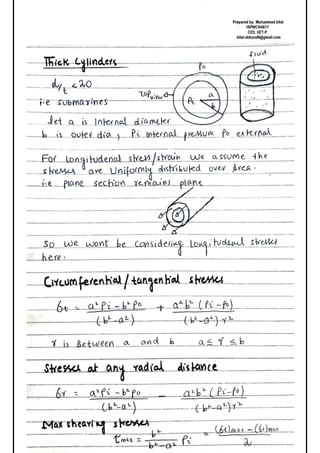 Prepared by: Muhammad bilal
16PWCIV4617
CED, UET-P
bilal.abhund9@gmail.com
fluid
Thick Cylinders
Po
d/t < 20
TOP view
a
Pi
b
i.e submarines
let a is Internal diameter
b is outer dia, Pi internal pressure Po external
For longitudenal stress/strain we assume the
stresses are Uniformly distributed over Area.
i.e plane section remains plane
So we wont be Considering longitudenal stresses
here.
Circumferential / tangential stresses
бt = a²Pi - b²Po / (b² - a²) + a²b² (Pi - Po) / (b² - a²) r²
r is Between a and b a ≤ r ≤ b
Stresses at any radial distance
бr = a²Pi - b²Po / (b² - a²) - a²b² (Pi - Po) / (b² - a²) r²
Max shearing stresses
τmax = b² / b² - a² Pi = (бt)max - (бr)max / 2